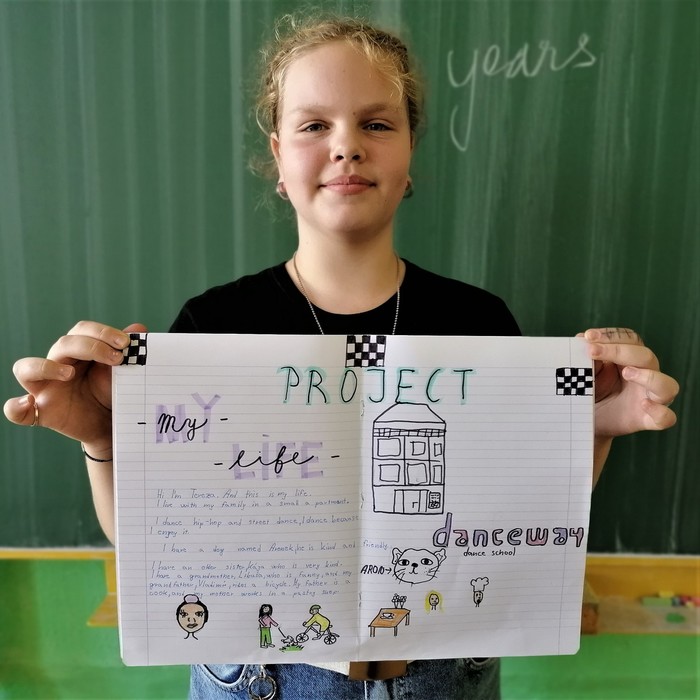 years
PROJECT
- My -
- life -
Hi I'm Tereza. And this is my life.
I live with my family in a small a partment.
I dance hip-hop and street dance, I dance because
I enjoy it.
I have a dog named Aronek, he is kind and friendly
I have an older sister Kája who is very kind.
I have a grandmother, Libuša, who is funny, and my
grandfather, Vladimír, rides a bicycle. My father is a
cook, and my mother works in a pastry
danceway
dance school
ARON→